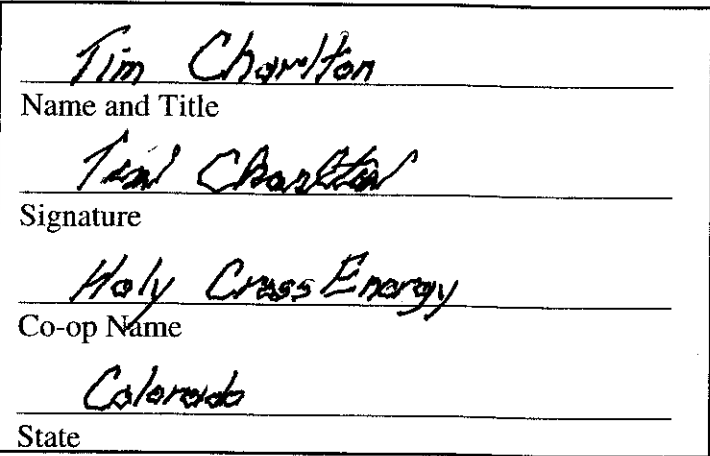 Tim Charlton
Name and Title
Tim Charlton
Signature
Holy Cross Energy
Co-op Name
Colorado
State